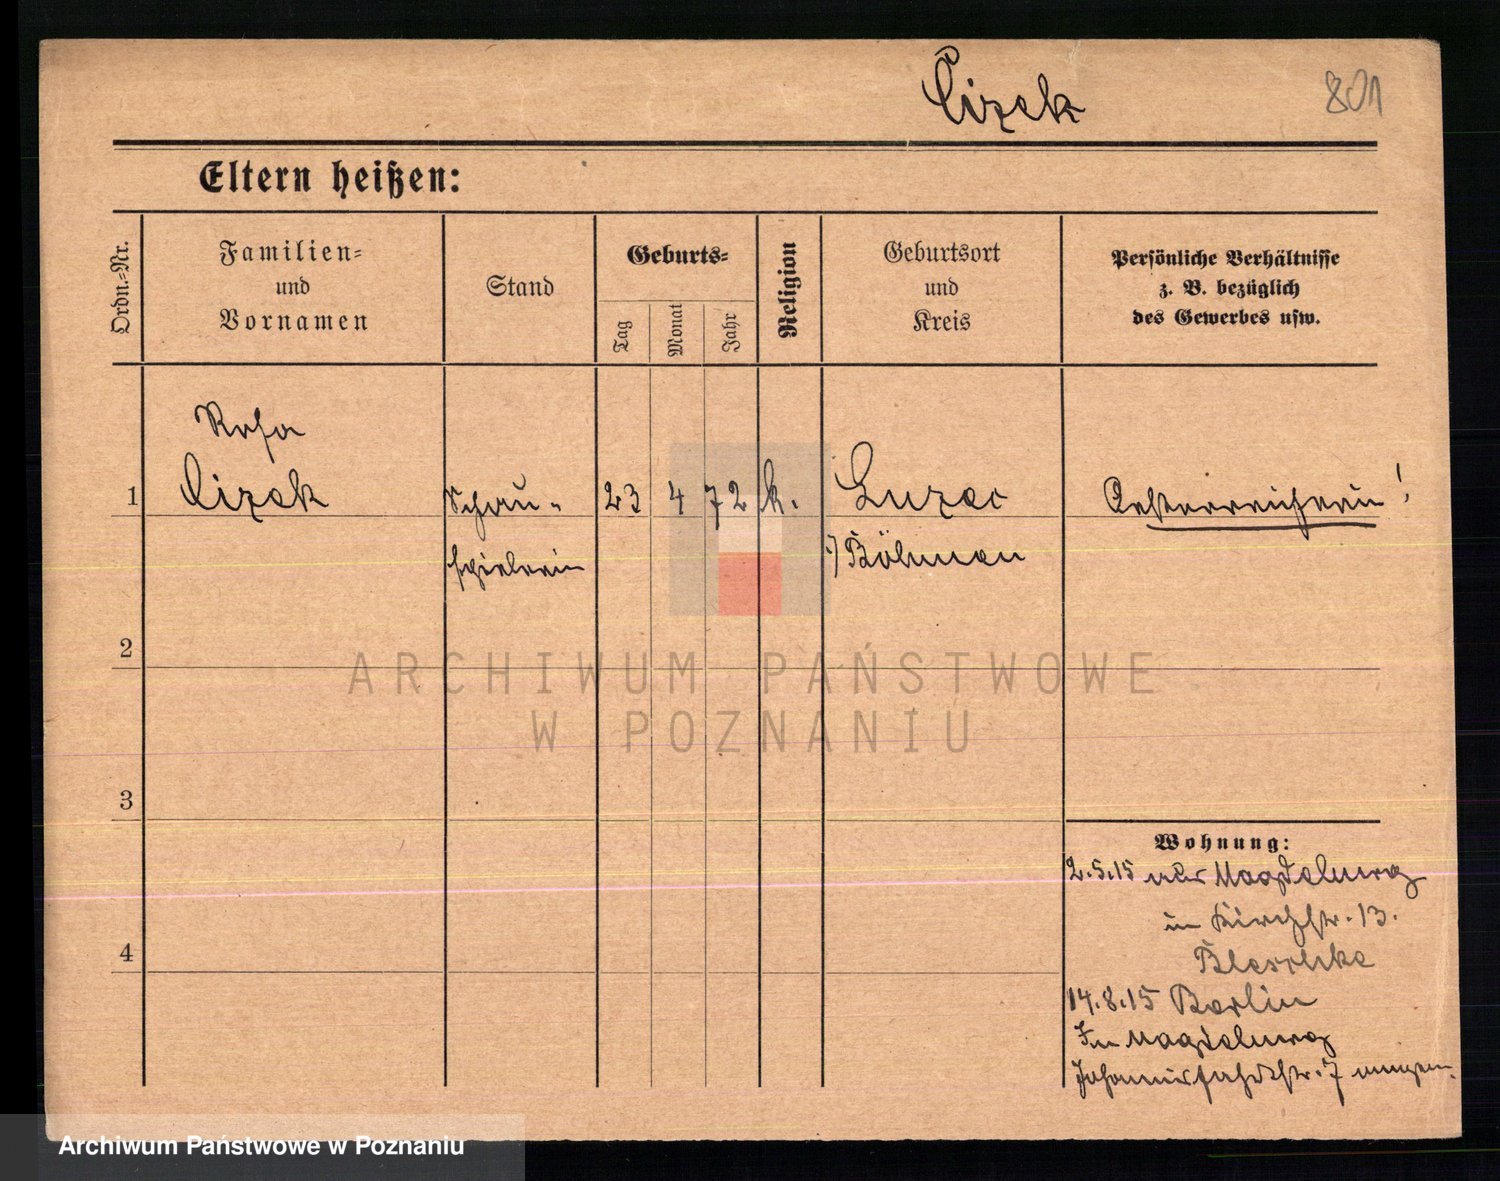 Cizek
801
Eltern heißen:
Ordn.-Nr.
Familien-
und
Vornamen
Stand
Geburts-
Tag
Monat
Jahr
Religion
Geburtsort
und
Kreis
Persönliche Verhältnisse
z. B. bezüglich
des Gewerbes usw.
Rosa
1 Cizek Schau- 23 4 72 k. Luzec Oesterreicherin!
spielerin Böhmen
2
ARCHIWUM PAŃSTWOWE
W POZNANIU
3
Wohnung:
2.5.15 aus Magdeburg
in Kirchstr. 13.
Bleschke
4
14.8.15 Berlin
In Magdeburg
Johannisfahrtstr. 7
Archiwum Państwowe w Poznaniu